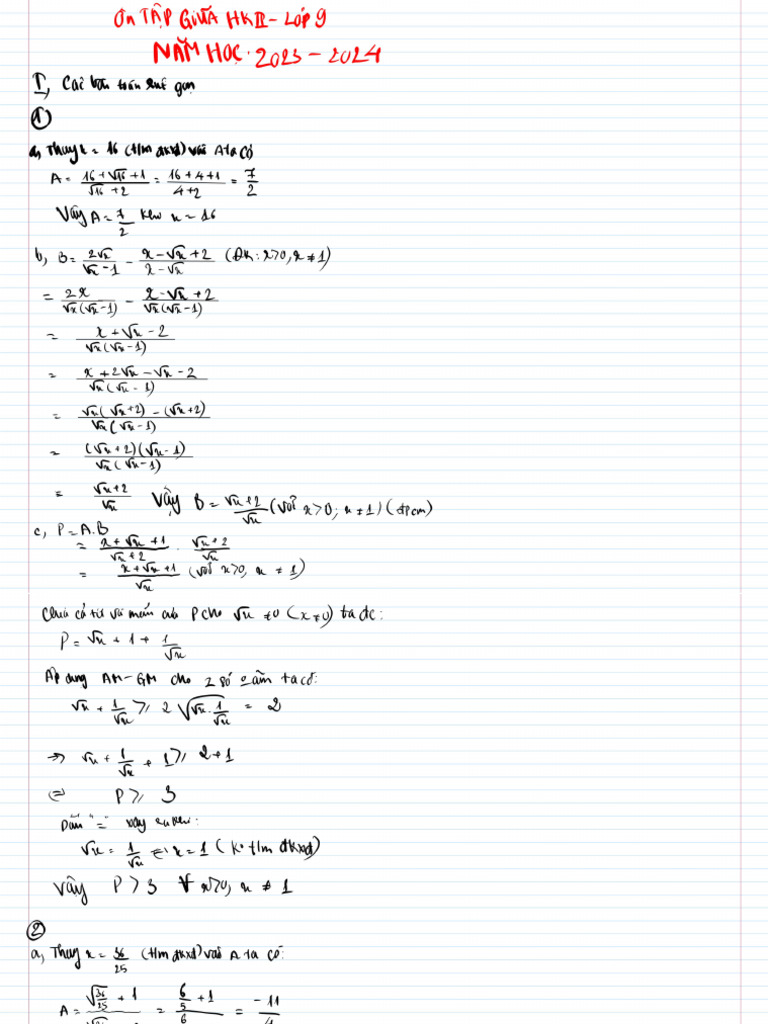 ÔN TẬP GIỮA HKII - LỚP 9
NĂM HỌC: 2023 - 2024
I, Các bài toán rút gọn
①
a, Thay x = 16 (t/m đkxđ) vào A ta có
A = (16 + √16 + 1)/(√16 + 2) = (16 + 4 + 1)/(4 + 2) = 7/2
Vậy A = 7/2 khi x = 16
b, B = 2√x/(√x - 1) - (x - √x + 2)/(x - √x) (ĐK: x > 0, x ≠ 1)
= 2x/(√x(√x - 1)) - (x - √x + 2)/(√x(√x - 1))
= (x + √x - 2)/(√x(√x - 1))
= (x + 2√x - √x - 2)/(√x(√x - 1))
= (√x(√x + 2) - (√x + 2))/(√x(√x - 1))
= ((√x + 2)(√x - 1))/(√x(√x - 1))
= (√x + 2)/√x Vậy B = (√x + 2)/√x (với x > 0; x ≠ 1) (đpcm)
c, P = A.B
= (x + √x + 1)/(√x + 2) . (√x + 2)/√x
= (x + √x + 1)/√x (với x > 0, x ≠ 1)
Chia cả tử và mẫu của P cho √x ≠ 0 (x ≠ 0) ta đc:
P = √x + 1 + 1/√x
Áp dụng AM - GM cho 2 số ta có:
√x + 1/√x ≥ 2√(√x . 1/√x) = 2
⇒ √x + 1/√x + 1 ≥ 2 + 1
⇔ P ≥ 3
Dấu "=" xảy ra khi:
√x = 1/√x ⇔ x = 1 (K° t/m đkxđ)
Vậy P > 3 ∀ x > 0, x ≠ 1
②
a, Thay x = 36/25 (t/m đkxđ) vào A ta có:
A = √36/25 + 1 = 6/5 + 1 = -11